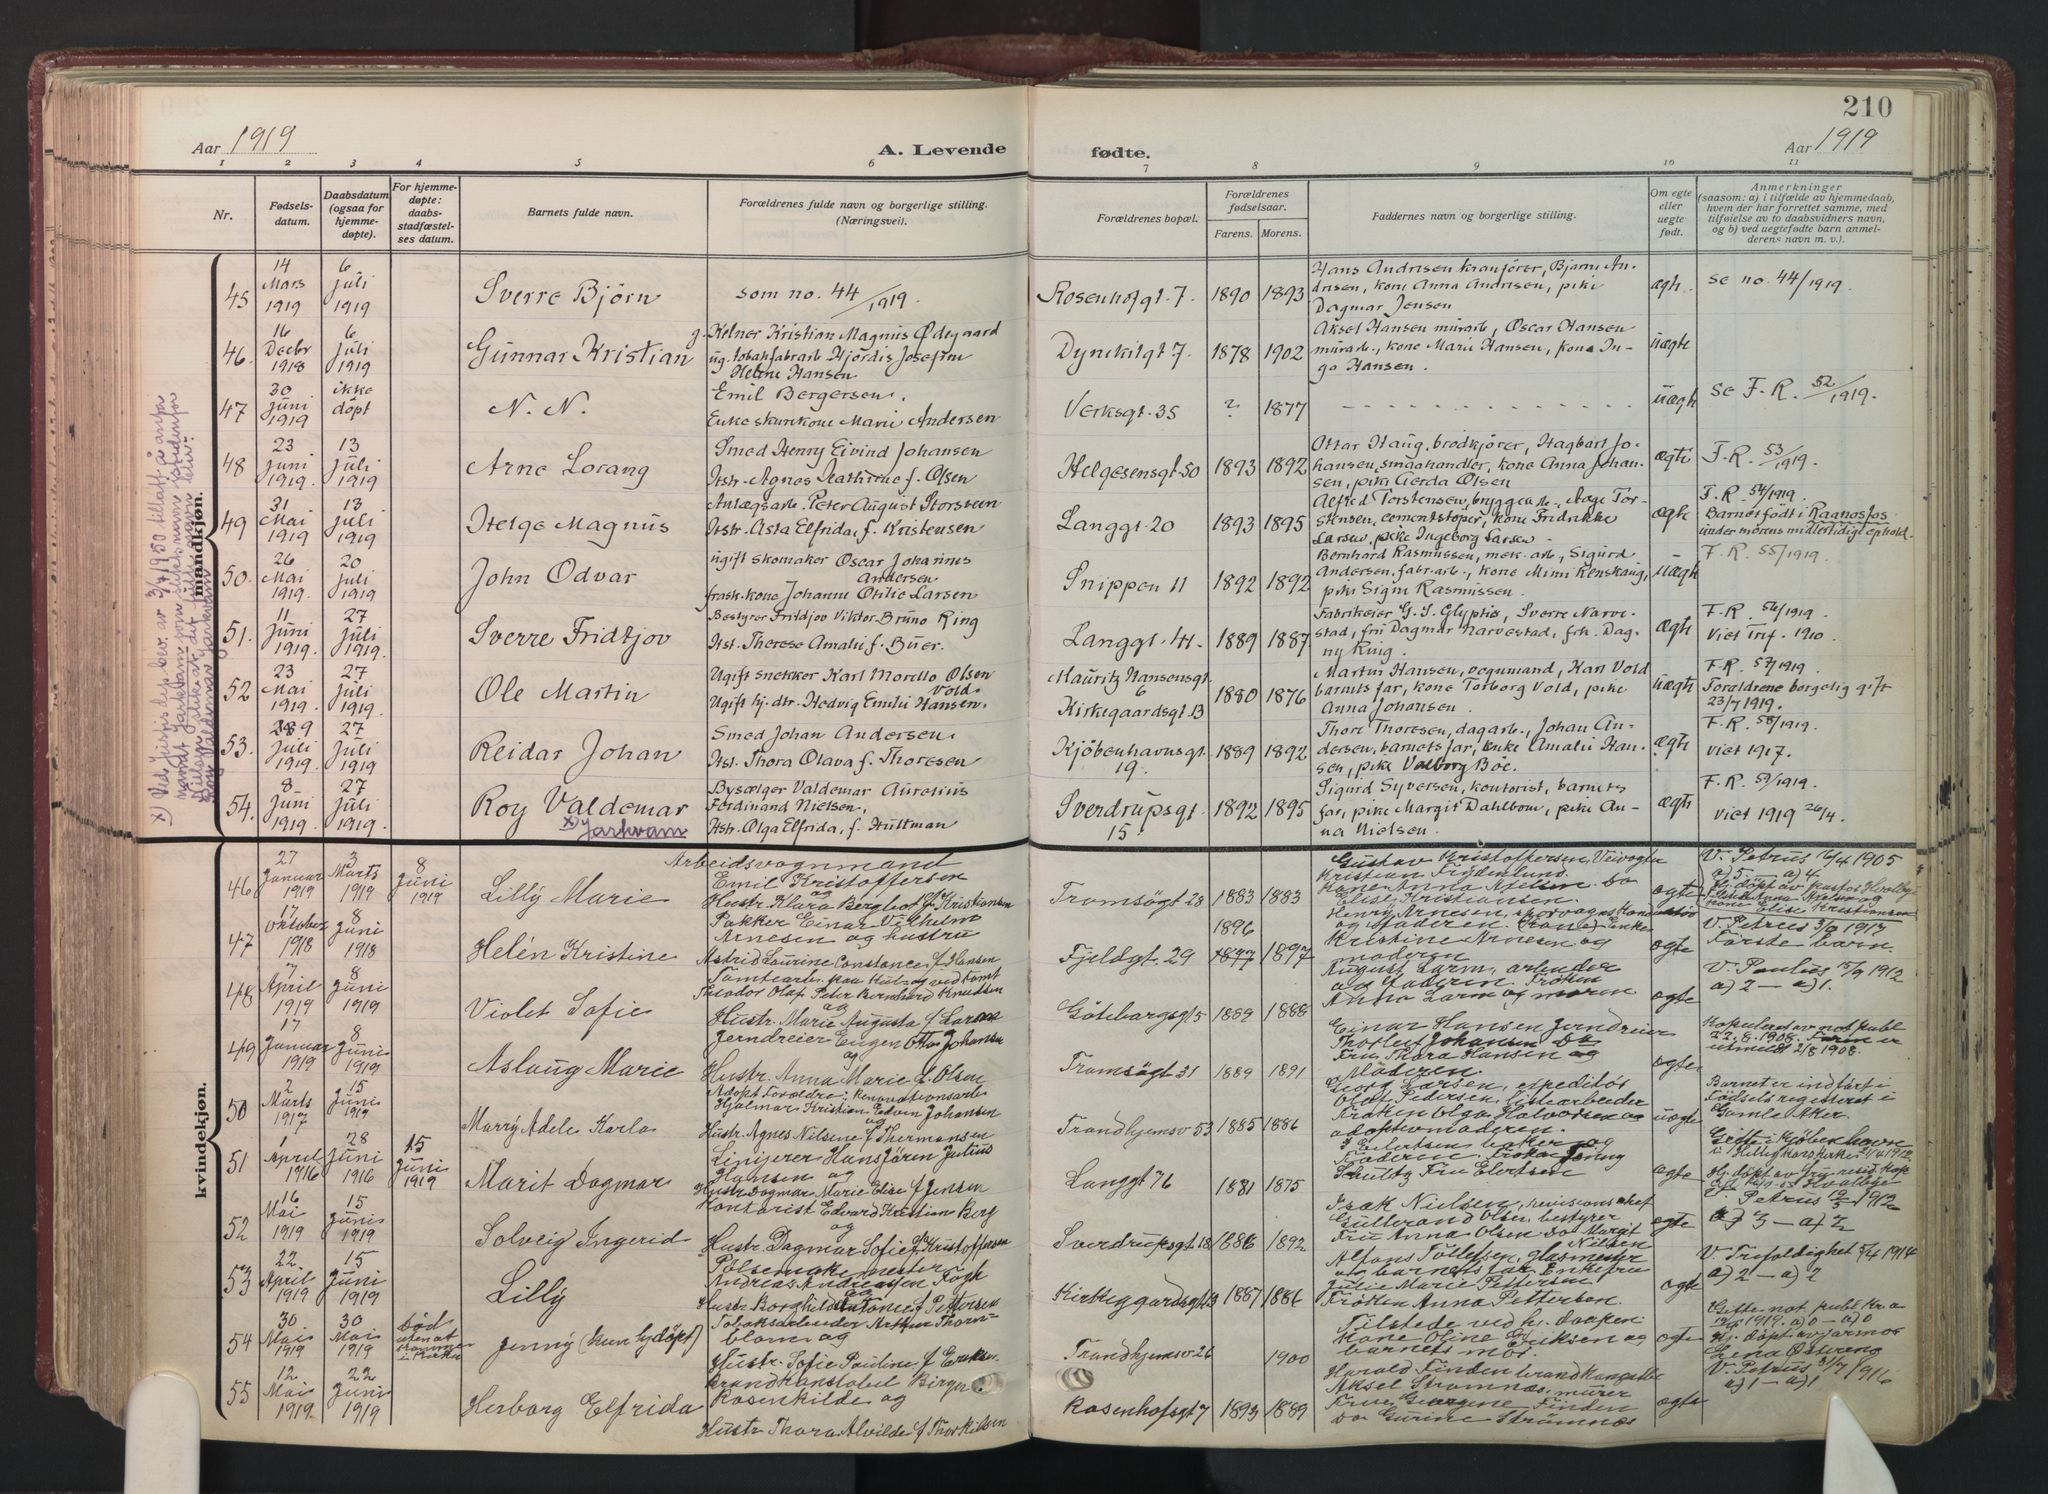 210
Aar 1919
A. Levende
fødte.
Aar 1919
1 2 3 4 5 6 7 8 9 10 11
Nr.
Fødsels-
datum.
Daabsdatum
(ogsaa for
hjemme-
døpte).
For hjemme-
døpte:
daabs-
stadfæstel-
ses datum.
Barnets fulde navn.
Forældrenes fulde navn og borgerlige stilling.
(Næringsvei).
Forældrenes bopæl.
Forældrenes
fødselsaar.
Farens. Morens.
Faddernes navn og borgerlige stilling.
Om egte
eller
uegte
født.
Anmerkninger
(saasom: a) i tilfælde av hjemmedaab,
hvem der har forrettet samme, med
tilføielse av to daabsvidners navn,
og b) ved uegtefødte barn anmel-
derens navn m. v.).
mandkjøn.
45
14 Mars 1919
6 Juli 1919
Sverre Bjørn
som no. 44/1919.
Rosenhofgt. 7.
1890 1893
Hans Andresen kranfører, Bjarne An-
dresen, kone Anna Andresen, pike
Dagmar Jensen
ægh.
se no. 44/1919.
46.
16 Decbr 1918
6 Juli 1919
Gunnar Kristian
g. Kelner Kristian Magnus Ødegaard
ug. tobakfabrarb. Hjørdis Josefine
Helene Hansen
Dynekilgt 7.
1878 1902
Aksel Hansen murarb, Oscar Hansen
murarb., kone Marie Hansen, kone In-
ga Hansen.
uægte
47
30 Juni 1919
ikke døpt
N. N.
Emil Bergersen.
Enke skurekone Marie Andersen
Verksgt. 35
? 1877
uægh
se F. R. 52/1919.
48
23 Juni 1919.
13 Juli 1919
Arne Lorang
Smed Henry Eivind Johansen
Hstr. Agnes Kathrine f. Olsen
Helgesensgt. 50
1893 1892
Ottar Haug, brødkjører, Hagbart Jo-
hansen, smaahandler, kone Anna Johan-
sen, pike Gerda Olsen
ægte
F. R. 53/1919.
49
31 Mai 1919
13 Juli 1919
Helge Magnus
Anlægsarb. Peter August Storsteen
Hstr. Asta Elfrida, f. Kristensen
Langgt. 20
1893 1895
Alfred Torstensen, bryggearb., Aage Tor-
stensen, cementstøper, kone Fridrikke
Larsen, pike Ingeborg Larsen
ægh
F. R. 54/1919.
Barnet født i Raanasfos
under morens midlertidige ophold.
50.
26 Mai 1919.
20 Juli 1919
John Odvar
ugift skomaker Oscar Johannes
Andersen
frask. kone Johanne Otilie Larsen
Snippen 11
1892 1892
Bernhard Rasmussen, mek. arb., Sigurd
Andersen, fabr. arb., kone Minni Kenskaug,
pike Signe Rasmussen.
uægh
F. R. 55/1919.
51.
11 Juni 1919.
27 Juli 1919.
Sverre Fridtjov
Bestyrer Fridtjov Viktor Bruno Ring
Hst. Therese Amalie f. Buer.
Langgt. 41.
1889 1887
Fabrikeier G. S. Glyptis, Sverre Narve-
stad, frü Dagmar Narvestad, frk. Dag-
ny Ring.
ægte
F. R. 56/1919
Viet Trf. 1910.
52
23 Mai 1919.
27 Juli 1919.
Ole Martin
Ugift snekker Karl Morello Olsen
Vold
Ugift hj. dtr. Hedvig Emilie Hansen.
Mauritz Hansensgt.
6
Kirkegaardsgt. 13
1880 1876
Martin Hansen, vognmand, Karl Vold
barnets far, kone Torborg Vold, pike
Anna Johansen.
uægte
F. R. 57/1919
Forældrene borgelig gift
23/7 1919.
53.
Juli 1919.
27 Juli 1919
Reidar Johan
Smed Johan Andersen.
Hst. Thora Olava f. Thoresen
Kjøbenhavnsgt.
19.
1889 1892
Thore Thoresen, dagarb., Johan An-
dersen, barnets far, enke Amalie Han-
sen, pike Valborg Böe.
ægte
F. R. 58/1919.
viet 1917.
54.
8 Juni 1919.
27 Juli 1919.
Roy Valdemar
x) Jarkvam
Bysælger Valdemar Aurelius
Ferdinand Nielsen,
Hstr. Olga Elfrida, f. Hultman
Sverdrupsgt.
15
1892 1895
Sigurd Syversen, kontorist, barnets
far, pike Margit Dahlbom, pike An-
na Nielsen.
ægte
F. R. 59/1919.
viet 1919 26/4.
x) Ved Justisdep. bev. av 3/7 1950 tillatt å anta
navnet Jarkvam som slektsnavn istedenfor
Nielsen, slik at det fulde navn blir:
Roy Valdemar Jarkvam
kvindekjøn.
46
27 Januar 1919
3 Marts 1919
8 Juni 1919
Lilly Marie
Arbeidsvognmand
Emil Kristoffersen
og
Hustr. Klara Berghot f. Kristiansen
Tromsøgt 28
1883 1883
Gustav Kristoffersen, Veivogter
Kristian Fredenlund.
Kone Anna Nielsen. Do
Elise Kristiansen.
ægte
V. Petrus 16/4 1905
a) 5 — a) 4.
47
17 Oktober 1918
8 Juni 1918
Helén Kristine
Pakker Einar Vilhelm
Arnesen og hustru
Astrid Laurine Constance f. Hansen
Fjeldgt. 29
1896
1877 1897
Henry Arnesen, sporvognskonduktör
og Faderen. Enke
Kristine Arnesen og
moderen
ægte
V. Petrus 3/9 1917
Første barn.
48
7 April 1919
8 Juni 1919
Violet Sofie
Theodor Olaf Peter Bernhard Knudsen
og
Hustr. Marie Augusta f. Larm
Göteborgsgt 5
1889 1888
August Larm, arbeider
og Faderen. Frøken
Anna Larm og moren
ægte
V. Paulus 15/9 1912
a) 2 — a) 1.
49
17 Januar 1919
8 Juni 1919
Aslaug Marie
Jerndreier Eugen Otto Johansen
og
Hustr. Anna Marie f. Olsen
Tromsøgt 31
1889 1891
Einar Hansen Jerndreier
Thorleif Johansen Do
Fru Thora Hansen og
Moderen.
ægte
Kopuleret av not publ
22.8.1908. Farm er
utmeldt 2/8 1908.
50
2 Marts 1917
15 Juni 1919
Marry Adele Karla
Adopt Forældre: Renovationsarb
Hjalmar Kristian Edvin Johansen
og
Hustr. Agnes Nilsene f Thermansen
Trondhjemsv 53
1885 1886
Georg Larsen, expeditör
Olaf Pedersen, listearbeider
Frøken Olga Halvorsen og
adoptivmoderen.
uægte
Barnet er indført i
Fødselsregisteret i
Gamle Aker.
51
1 April 1916
28 Juni 1916
15 Juni 1919
Marit Dagmar
Linjerer Hans Jören Julius
Hansen og
Hustr. Dagmar Marie Elise f. Jensen
Langgt 76
1881 1875
Eilertsen baker og
Faderen. Frøken Jenny
Schultz Fru Elertsen
ægte
Gift i Kjøbenhavn
52
16 Mai 1919
15 Juni 1919
Solveig Ingerid
Kontorist Edvard Kristian Berg
og
Hustr. Dagmar Sofie f. Kristoffersen
Sverdrupsgt 18
1886 1892
Isak Nielsen, revisionschef
Gulbrand Olsen, bestyrer
Fru Anna Olsen Do Margit
Nielsen
ægte
V. Petrus 19/5 1912
a) 3 — a) 2
53
22 April 1919
15 Juni 1919
Lilly
Pølsemakermester
Andreas Andreassen Fogh
og
Hustr. Borghild Antonie f. Pettersen
Kirkeggardsgt 13
1887 1886
Alfons Tollefsen, glasmester
og barnets far. Enkefru
Julie Marie Pettersen
Frøken Anna Pettersen.
ægte
V. Trefoldighet 5/4 1914
a) 2 — a) 2
54
30 Mai 1919
30 Mai 1919
død
uten at
i kirken
Jenny (kun hjdøpt)
Tobaksarbeider Arthur Thorn-
blom og
Hustr. Sofie Pauline f. Eriksen
Trondhjemsv 26
1900
Tilstede ved hj. daapen:
Kone Oline Eriksen og
barnets mor.
ægte
Gifte not publ Kra
1919. a) 0 — a) 0
Hj. døpt av jormor
Lena Østereng
55
12 Mai 1919.
22 Juni 1919
Herborg Elfrida
Brandkonstabel Birger
Rosenkilde og
Hustr Thora Alvilde f Thorkildsen
Rosenhofsgt 7
1893 1889
Harald Finden brandkonstabel
Aksel Strømnæs, murer
Fru Georgine Finden
Do Gurine Strømnæs
ægte
V. Petrus 31/7 1916
a) 1 — a) 1